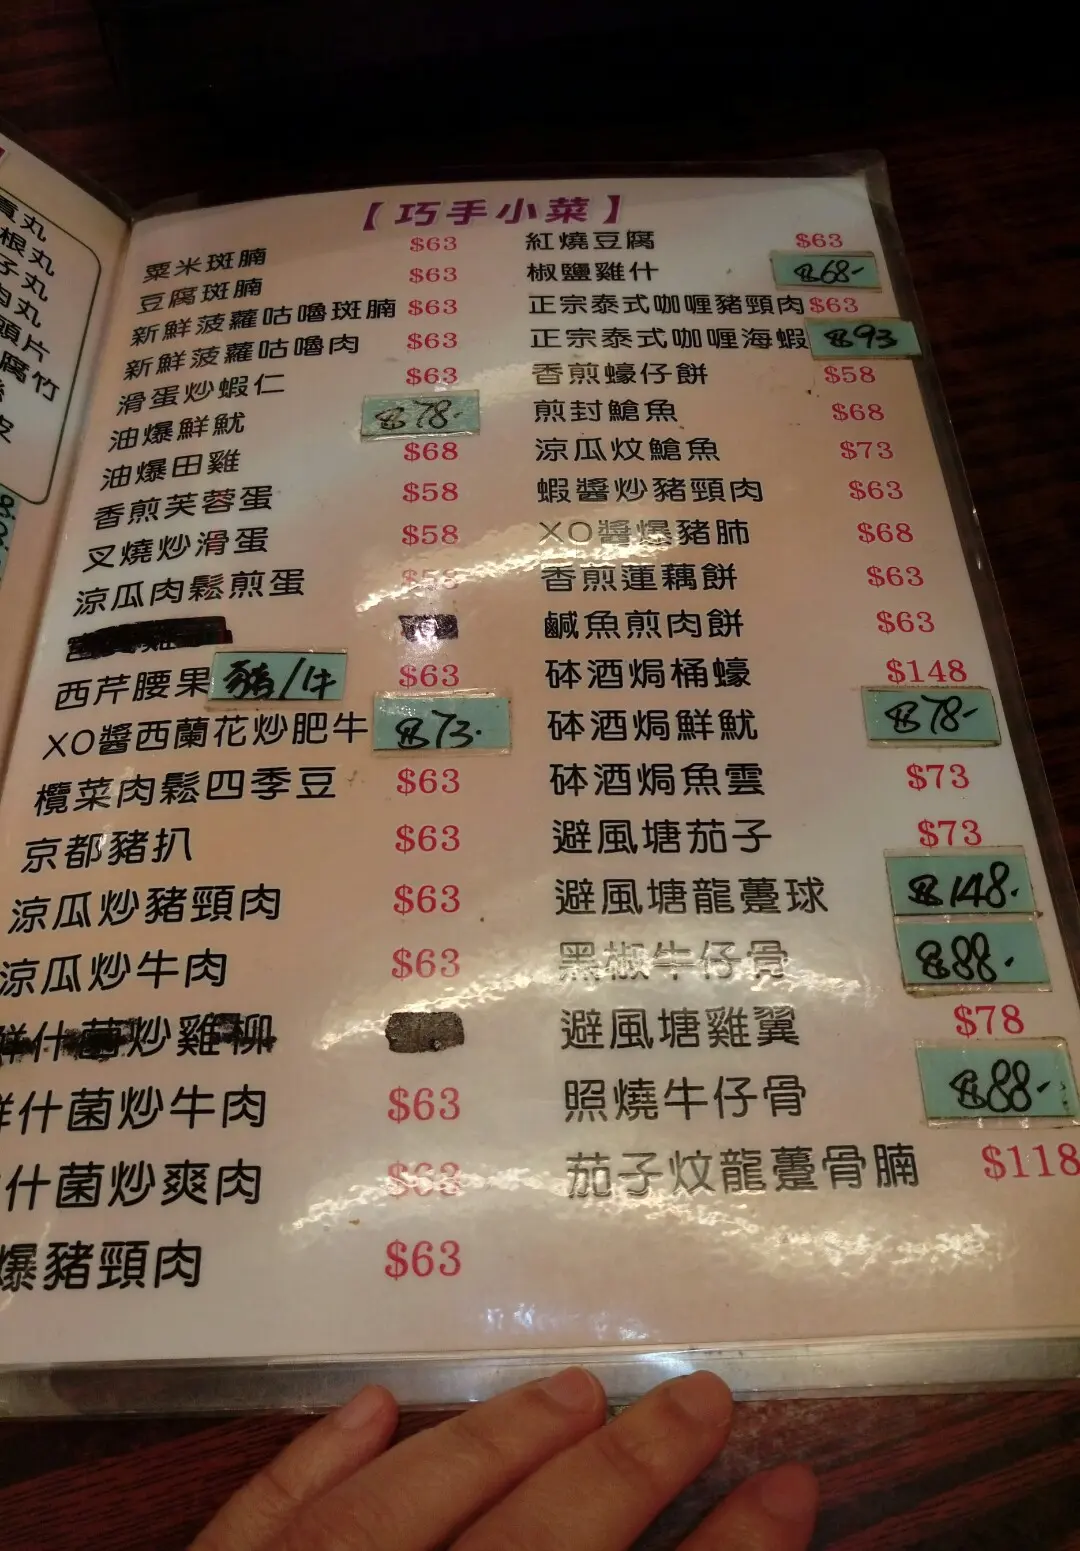 【巧手小菜】
粟米斑腩 $63
豆腐斑腩 $63
新鮮菠蘿咕嚕斑腩 $63
新鮮菠蘿咕嚕肉 $63
滑蛋炒蝦仁 $63
油爆鮮魷 $78-
油爆田雞 $68
香煎芙蓉蛋 $58
叉燒炒滑蛋 $58
涼瓜肉鬆煎蛋 $58
西芹腰果豬/牛 $63
XO醬西蘭花炒肥牛 $73-
欖菜肉鬆四季豆 $63
京都豬扒 $63
涼瓜炒豬頸肉 $63
涼瓜炒牛肉 $63
鮮什菌炒雞柳
鮮什菌炒牛肉 $63
什菌炒爽肉 $63
爆豬頸肉 $63
紅燒豆腐 $63
椒鹽雞什 $68-
正宗泰式咖喱豬頸肉 $63
正宗泰式咖喱海蝦 $93
香煎蠔仔餅 $58
煎封鯧魚 $68
涼瓜炆鯧魚 $73
蝦醬炒豬頸肉 $63
XO醬爆豬肺 $68
香煎蓮藕餅 $63
鹹魚煎肉餅 $63
砵酒焗桶蠔 $148
砵酒焗鮮魷 $78-
砵酒焗魚雲 $73
避風塘茄子 $73
避風塘龍躉球 $148-
黑椒牛仔骨 $88-
避風塘雞翼 $78
照燒牛仔骨 $88-
茄子炆龍躉骨腩 $118
丸
根丸
子丸
肉丸
頭片
腐竹